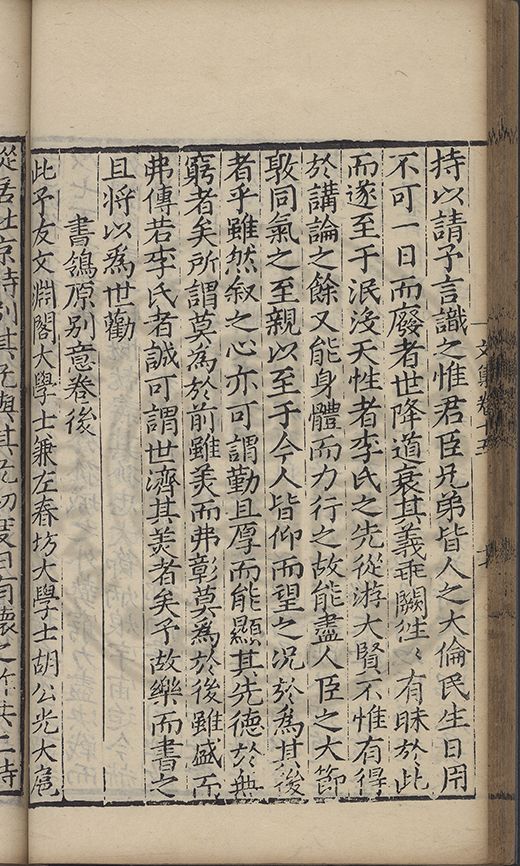 文集卷十五
持以請予言識之惟君臣兄弟皆人之大倫民生日用
不可一日而廢者世降道衰其義乖闕徃〻有昧於此
而遂至于泯沒天性者李氏之先從游大賢不惟有得
於講論之餘又能身體而力行之故能盡人臣之大節
敦同氣之至親以至于今人皆仰而望之况於為其後
者乎雖然叙之心亦可謂勤且厚而能顯其先德於無
窮者矣所謂莫為於前雖羙而弗彰莫為於後雖盛而
弗傳若李氏者誠可謂世濟其羙者矣予故樂而書之
且將以爲世勸
書鴒原别意卷後
此予友文淵閣大學士兼左春坊大學士胡公光大扈
從居北京時别其兄與其兄